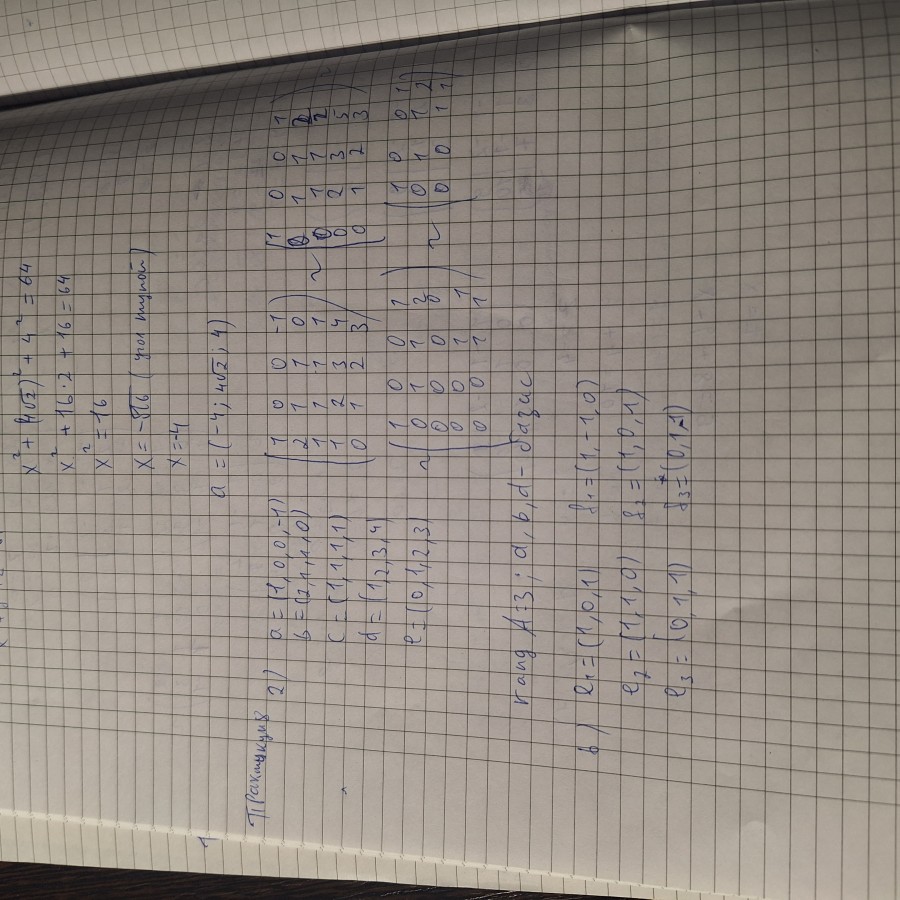 x² + (4√2)² + 4² = 64
x² + 16·2 + 16 = 64
x² = 16
x = -√16 (угол тупой)
x = -4
a = (-4; 4√2; 4)
1
Практикум 2)
a = (1, 0, 0, -1)
b = (2, 1, 1, 0)
c = (1, 1, 1, 1)
d = (1, 2, 3, 4)
e = (0, 1, 2, 3)
(1 0 0 -1
2 1 1 0
1 1 1 1
1 2 3 4
0 1 2 3)
~
(1 0 0 1
0 1 1 2
0 1 1 2
0 2 3 5
0 1 2 3)
~
(1 0 0 1
0 1 1 2
0 0 0 0
0 0 1 1
0 0 1 1)
~
(1 0 0 1
0 1 1 2
0 0 1 1)
ранд A=3; a, b, d - базис
b) e₁ = (1, 0, 1) f₁ = (1, -1, 0)
e₂ = (1, 1, 0) f₂ = (1, 0, 1)
e₃ = (0, 1, 1) f₃ = (0, 1, 1)